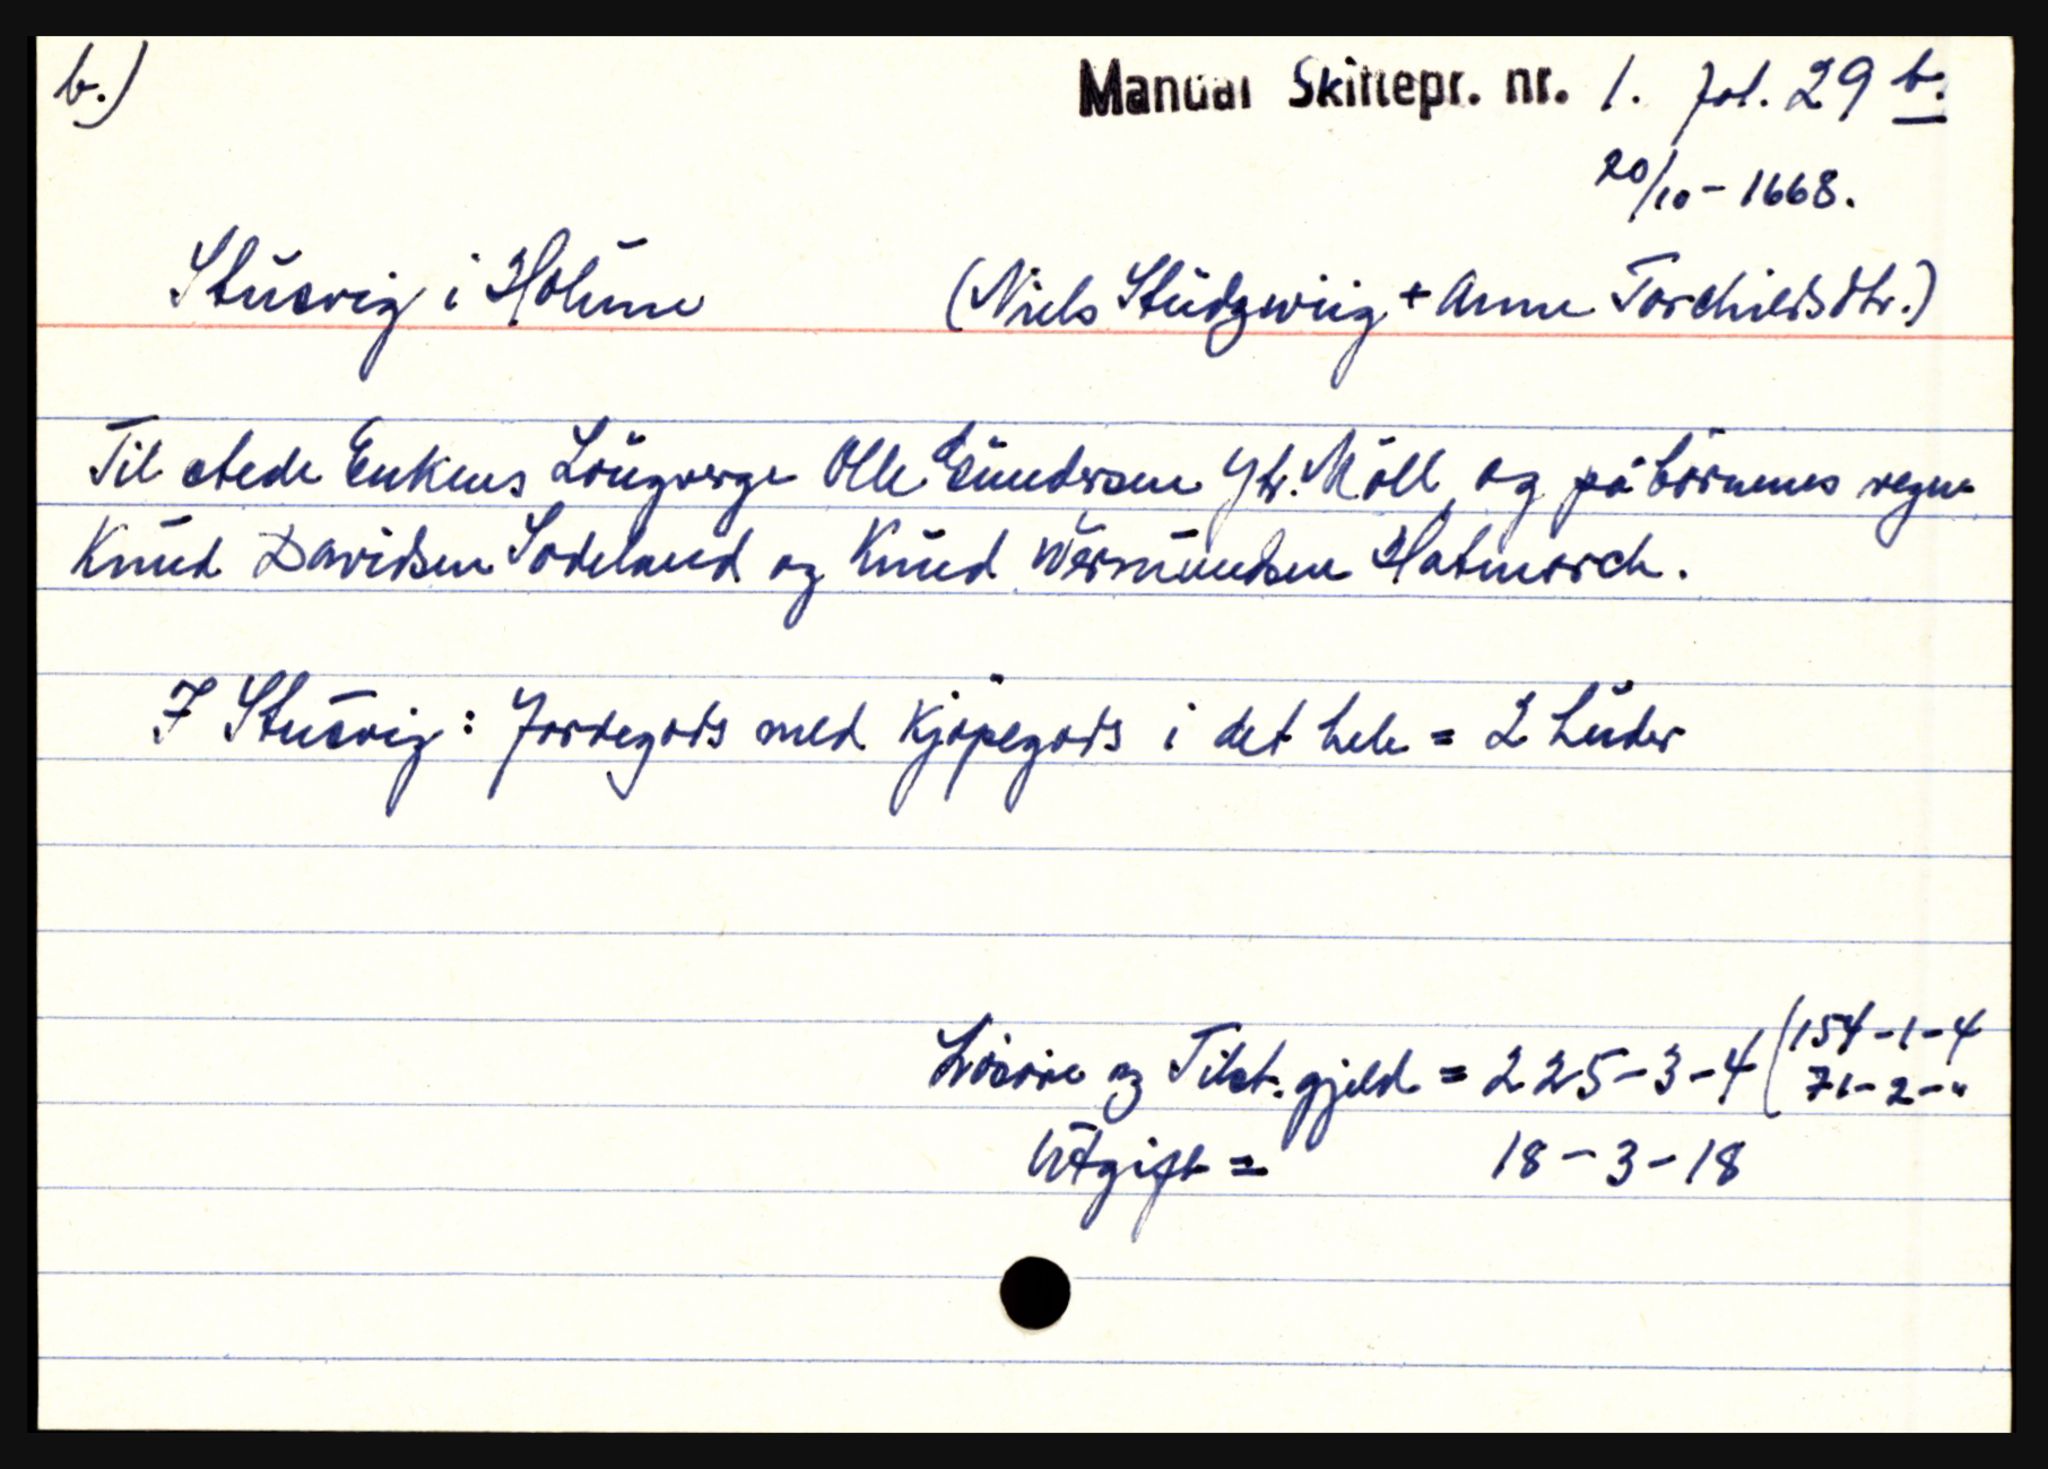 b.)
Manual Skiftepr. nr. 1. fol. 29 b.
20/10 - 1668.
Stusvig i Holume (Niels Stüdzwiig + Anne Torchildsdtr.)
Til stede Enkens Lougverge Olle Gundersen Ytr. Möll, og på börnenes regne
Knud Davidsen Sodeland og Knud Wermundsen Hatmarck.
I Stusvig: Jordegods med Kjöpegods i det hele = 2 huder
Lösöre og Tilst. gjeld = 225-3-4 (154-1-4
71-2-"
Utgift = 18-3-18